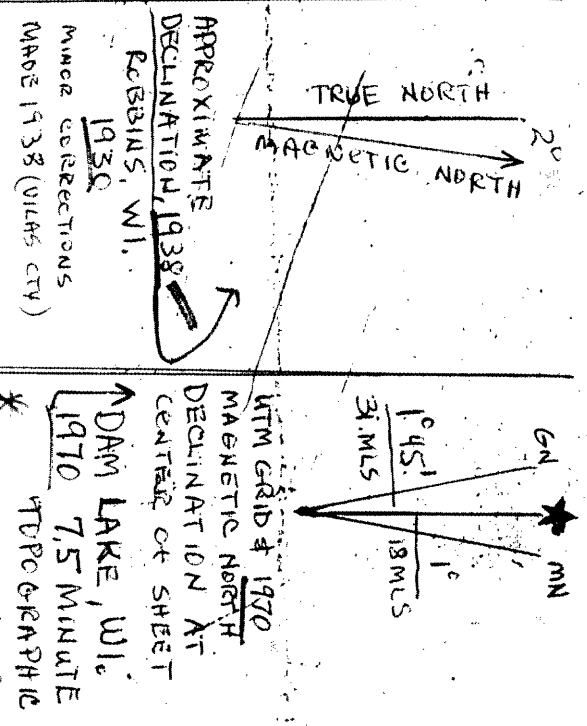 TRUE NORTH
2°
MAGNETIC NORTH
APPROXIMATE
DECLINATION, 1938
ROBBINS, WI.
1930
MINOR CORRECTIONS
MADE 1938 (VILAS CTY)
GN
★
MN
1°45'
31 MLS
1°
18 MLS
UTM GRID & 1970
MAGNETIC NORTH
DECLINATION AT
CENTER OF SHEET
DAM LAKE, WI.
1970 7.5 MINUTE
* TOPOGRAPHIC